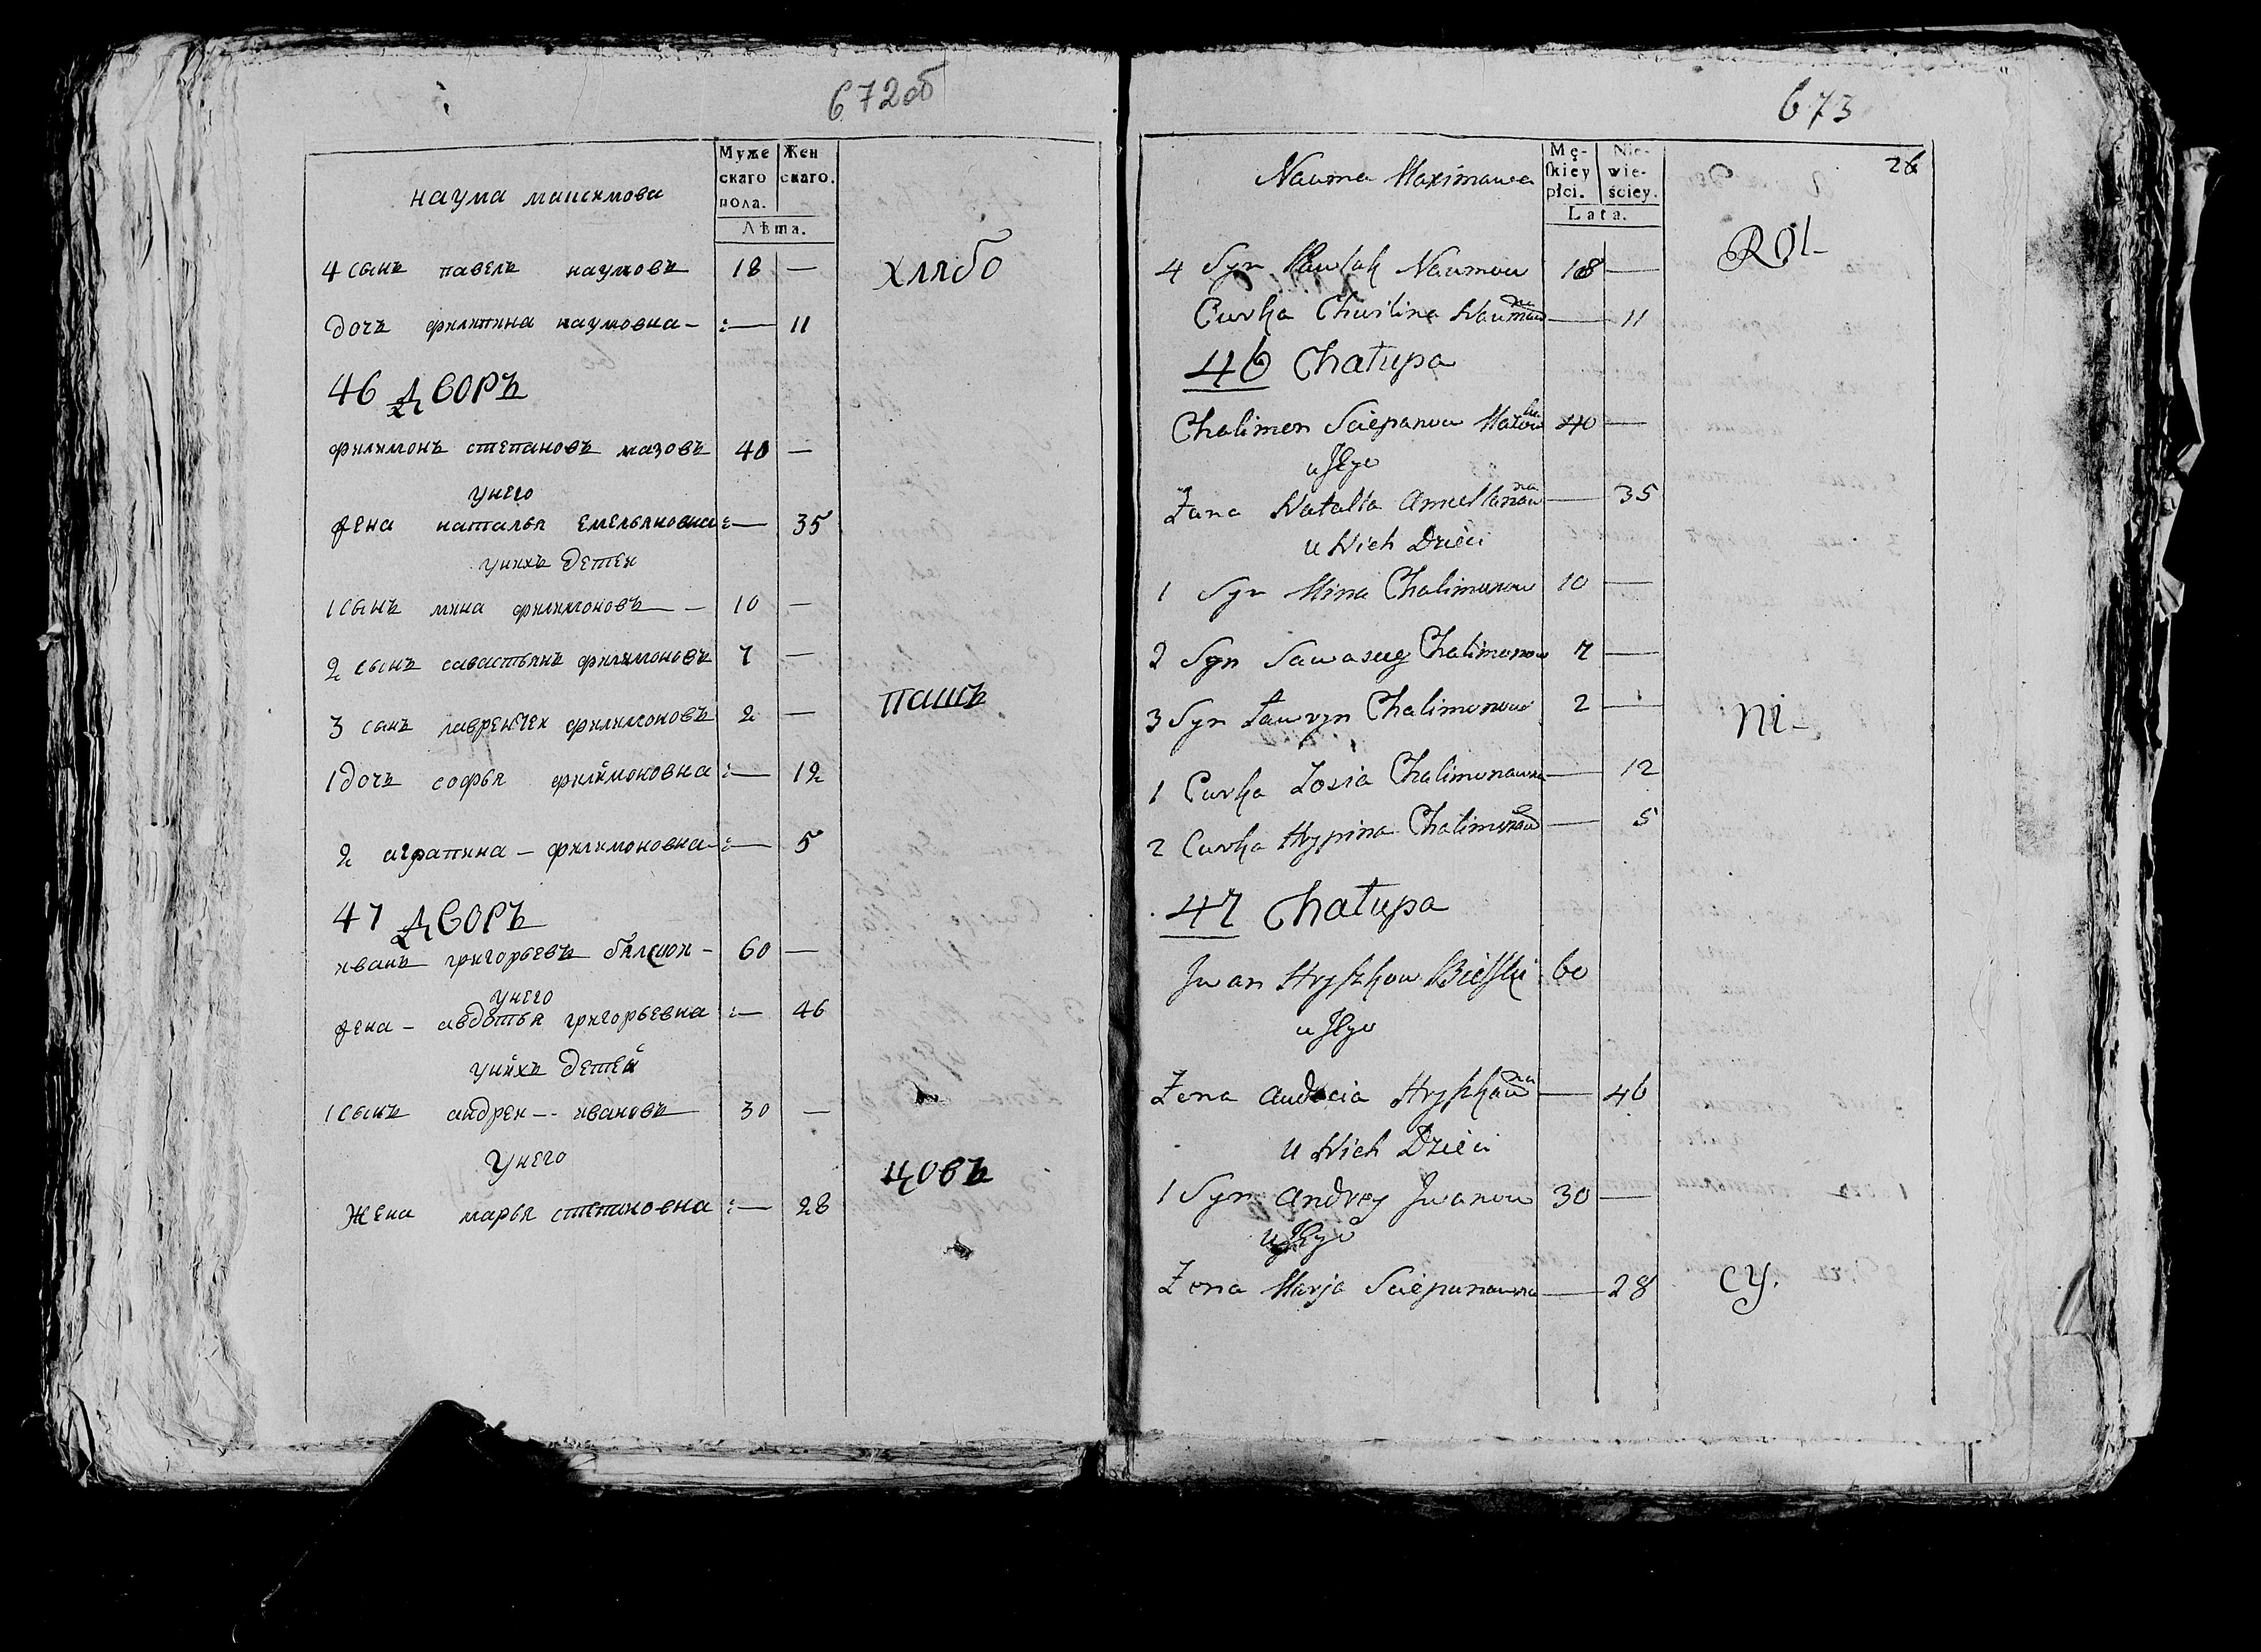 672об
Муже
скаго
пола.
Жен
скаго.
Лѣта.
наума максимова
4 сынъ павелъ наумовъ 18 —
дочь филипина наумовна — :— 11
хлѣбо
46 дворъ
филимонъ степановъ мазовъ 40 —
унего
жена наталья емельяновна :— 35
унихъ детей
1 сынъ мина филимоновъ — 10 —
2 сынъ савастьянъ филимоновъ 7 —
3 сынъ лаврентей филимоновъ 2 —
пашъ
1 дочь софья филимоновна :— 12
2 аграпина — филимоновна :— 5
47 дворъ
иванъ григорьевъ — 60 —
унего
жена — авдотья григорьевна :— 46
унихъ детей
1 сынъ андрей — ивановъ 30 —
унего
цовъ
жена марья степановна :— 28
673
26
Mę-
skiey
płci.
Nie-
wie-
ściey.
Lata.
Nauma Maximawa
Rol-
4 Syn Pawluk Naumow 18 —
Curka Chwilina Naumowna — 11
46 Chałupa
Chalimon Sciepanow 40 —
u Jego
Żana Natalla — 35
u Nich Dzieci
1 Syn Mina Chalimonow 10 —
2 Syn Chalimonow 7 —
3 Syn Ławryn Chalimonow 2 —
ni-
1 Curka Zosia Chalimonawna — 12
2 Curka Hrypina Chalimonowna — 5
47 Chałupa
Jwan Hryszkow Bielski 60
u Jego
Żena Audocia Hryszkowna — 46
u Nich Dzieci
1 Syn Andrey Jwanow 30 —
u Jego
Żena Marja Sciepanawna — 28
cy.